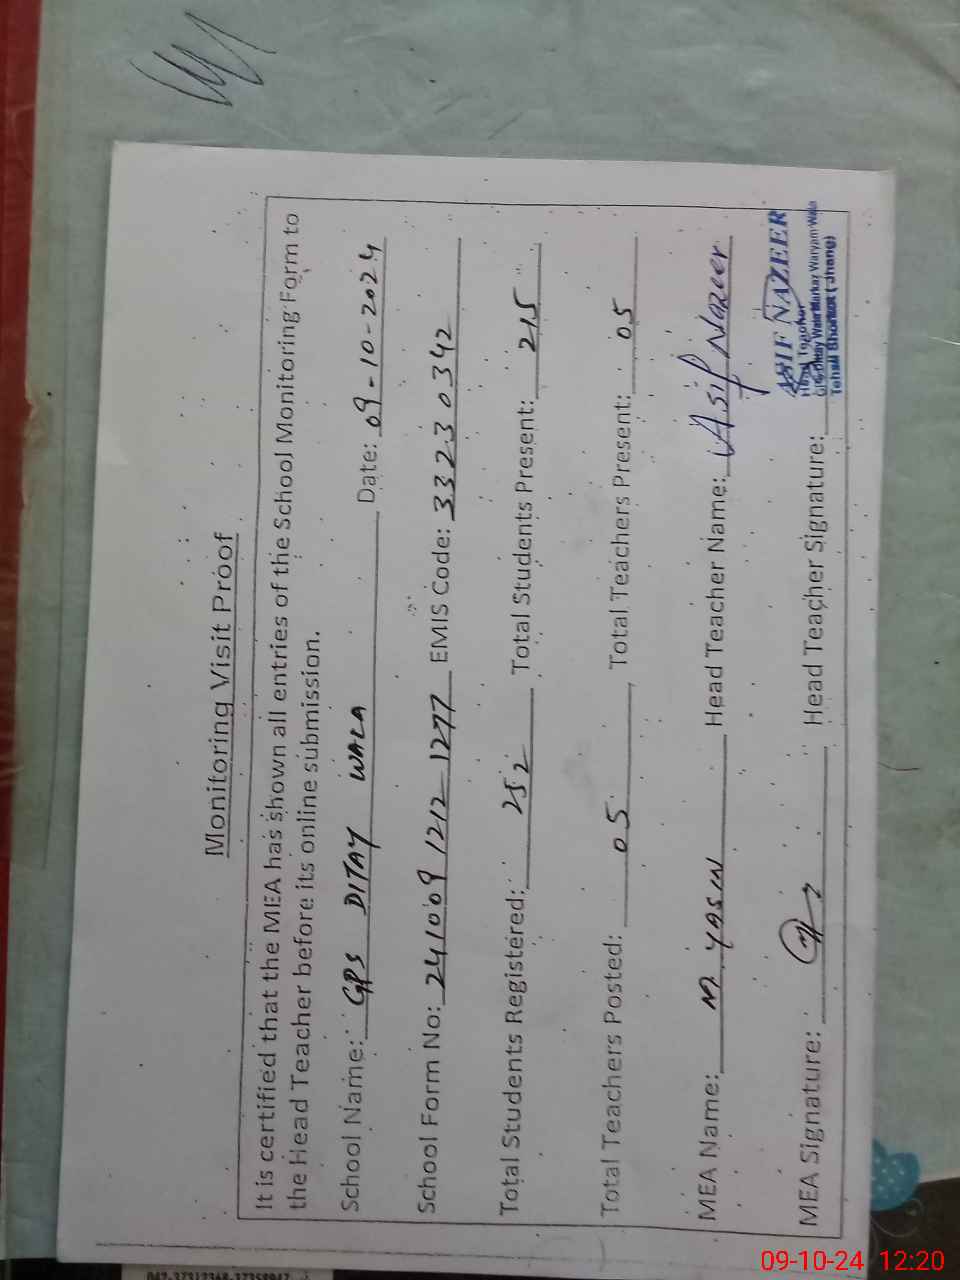 Monitoring Visit Proof
It is certified that the MEA has shown all entries of the School Monitoring Form to
the Head Teacher before its online submission.
School Name: GPS DITAY WALA Date: 09-10-2024
School Form No: 241009 1212 1277 EMIS Code: 33230342
Total Students Registered: 252 Total Students Present: 215
Total Teachers Posted: 05 Total Teachers Present: 05
MEA Name: M. YASIN Head Teacher Name: Asif Nazeer
MEA Signature: Head Teacher Signature:
ASIF NAZEER
Head Teacher
Wala Markaz Waryam Wala
Tehsil Shorkot (Jhang)
042-37312368-37358047
09-10-24 12:20